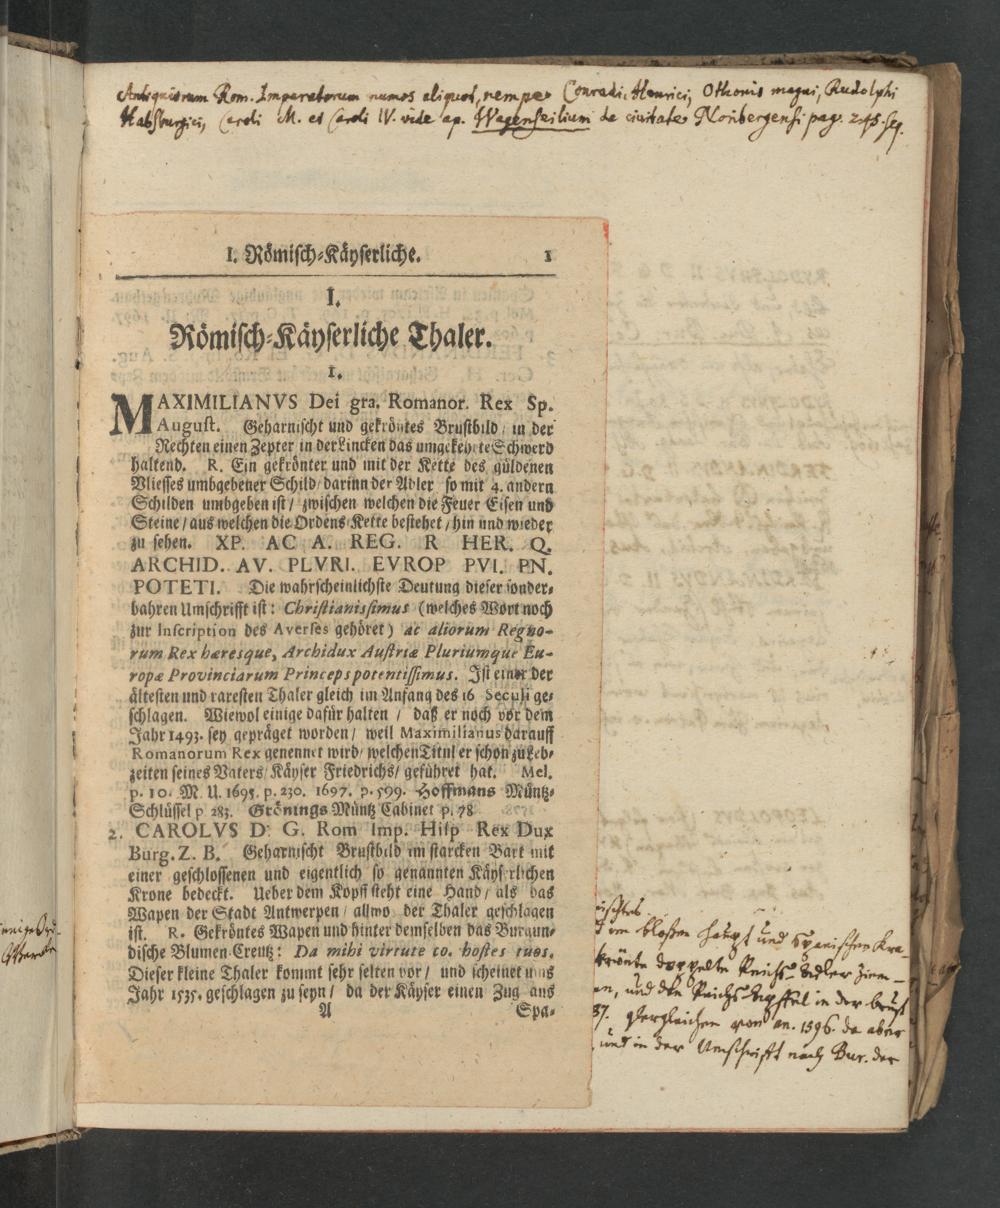 Antiquiorum Rom. Imperatorum numos aliquot, nempe Conradi, Henrici, Othonis magni, Rudolphi
Habsburgici, Caroli M. et Caroli IV. vide ap. Wagenseilium de civitate Noribergensi pag. 245. seq.
I. Römisch-Käyserliche. 1
I.
Römisch-Käyserliche Thaler.
1.
MAXIMILIANVS Dei gra. Romanor. Rex Sp.
August. Geharnischt und gekröntes Brustbild / in der
Rechten einen Zepter in der Lincken das umgekehrte Schwerd
haltend. R. Ein gekrönter und mit der Kette des güldenen
Vliesses umbgebener Schild / darinn der Adler so mit 4. andern
Schilden umbgeben ist / zwischen welchen die Feuer Eisen und
Steine / aus welchen die Ordens Kette bestehet / hin und wieder
zu sehen. XP. AC A. REG. R HER. Q.
ARCHID. AV. PLVRI. EVROP PVI. PN.
POTETI. Die wahrscheinlichste Deutung dieser sonder-
bahren Umschrifft ist: Christianissimus (welches Wort noch
zur Inscription des Averses gehöret) ac aliorum Regno-
rum Rex hæresque, Archidux Austriæ Pluriumque Eu-
ropæ Provinciarum Princeps potentissimus. Ist einer der
ältesten und raresten Thaler gleich im Anfang des 16 Seculi ge-
schlagen. Wiewol einige dafür halten / daß er noch vor dem
Jahr 1493. sey gepräget worden / weil Maximilianus darauff
Romanorum Rex genennet wird / welchen Titul er schon zu Leb-
zeiten seines Vaters / Käyser Friedrichs / geführet hat. Mel.
p. 10. M. U. 1695. p. 230. 1697. p. 599. Hoffmans Müntz-
Schlüssel p 283. Grönings Müntz Cabinet p. 78
2. CAROLVS D. G. Rom Imp. Hisp Rex Dux
Burg. Z. B. Geharnischt Brustbild im starcken Bart mit
einer geschlossenen und eigentlich so genannten Käyserlichen
Krone bedeckt. Ueber dem Kopff steht eine Hand / als das
Wapen der Stadt Antwerpen / allwo der Thaler geschlagen
ist. R. Gekröntes Wapen und hinter demselben das Burgun-
dische Blumen-Creutz: Da mihi virtute co. hostes tuos.
Dieser kleine Thaler kommt sehr selten vor / und scheinet ums
Jahr 1535. geschlagen zu seyn / da der Käyser einen Zug aus
A Spa-
im bloßen Haupt und Spanischen Kra-
krönte doppelte Reichs-Adler
en, und den Reichs-Apffel in der brust
87. Dergleichen von an. 1596. da aber
und in der Umschrifft nach Bur. der